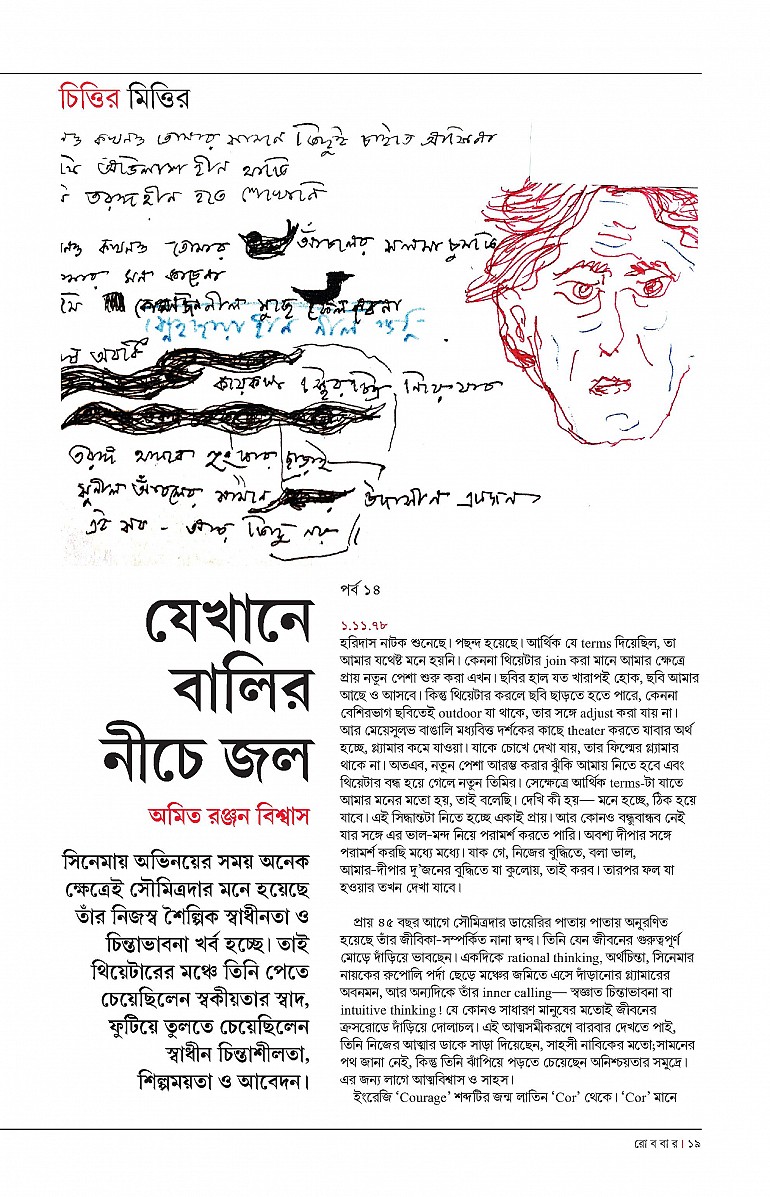 চিত্তির মিত্তির
তোমার
তোমার
তরঙ্গ
সুনীল
এই সব -
যেখানে
বালির
নীচে জল
অমিত রঞ্জন বিশ্বাস
সিনেমায় অভিনয়ের সময় অনেক
ক্ষেত্রেই সৌমিত্রদার মনে হয়েছে
তাঁর নিজস্ব শৈল্পিক স্বাধীনতা ও
চিন্তাভাবনা খর্ব হচ্ছে। তাই
থিয়েটারের মঞ্চে তিনি পেতে
চেয়েছিলেন স্বকীয়তার স্বাদ,
ফুটিয়ে তুলতে চেয়েছিলেন
স্বাধীন চিন্তাশীলতা,
শিল্পময়তা ও আবেদন।
পর্ব ১৪
১.১১.৭৮
হরিদাস নাটক শুনেছে। পছন্দ হয়েছে। আর্থিক যে terms দিয়েছিল, তা
আমার যথেষ্ট মনে হয়নি। কেননা থিয়েটার join করা মানে আমার ক্ষেত্রে
প্রায় নতুন পেশা শুরু করা এখন। ছবির হাল যত খারাপই হোক, ছবি আমার
আছে ও আসবে। কিন্তু থিয়েটার করলে ছবি ছাড়তে হতে পারে, কেননা
বেশিরভাগ ছবিতেই outdoor যা থাকে, তার সঙ্গে adjust করা যায় না।
আর মেয়েসুলভ বাঙালি মধ্যবিত্ত দর্শকের কাছে theater করতে যাবার অর্থ
হচ্ছে, গ্ল্যামার কমে যাওয়া। যাকে চোখে দেখা যায়, তার ফিল্মের গ্ল্যামার
থাকে না। অতএব, নতুন পেশা আরম্ভ করার ঝুঁকি আমায় নিতে হবে এবং
থিয়েটার বন্ধ হয়ে গেলে নতুন তিমির। সেক্ষেত্রে আর্থিক terms-টা যাতে
আমার মনের মতো হয়, তাই বলেছি। দেখি কী হয়— মনে হচ্ছে, ঠিক হয়ে
যাবে। এই সিদ্ধান্তটা নিতে হচ্ছে একাই প্রায়। আর কোনও বন্ধুবান্ধব নেই
যার সঙ্গে এর ভাল-মন্দ নিয়ে পরামর্শ করতে পারি। অবশ্য দীপার সঙ্গে
পরামর্শ করছি মধ্যে মধ্যে। যাক গে, নিজের বুদ্ধিতে, বলা ভাল,
আমার-দীপার দু’জনের বুদ্ধিতে যা কুলোয়, তাই করব। তারপর ফল যা
হওয়ার তখন দেখা যাবে।
প্রায় ৪৫ বছর আগে সৌমিত্রদার ডায়েরির পাতায় পাতায় অনুরণিত
হয়েছে তাঁর জীবিকা-সম্পর্কিত নানা দ্বন্দ্ব। তিনি যেন জীবনের গুরুত্বপূর্ণ
মোড়ে দাঁড়িয়ে ভাবছেন। একদিকে rational thinking, অর্থচিন্তা, সিনেমার
নায়কের রুপোলি পর্দা ছেড়ে মঞ্চের জমিতে এসে দাঁড়ানোর গ্ল্যামারের
অবনমন, আর অন্যদিকে তাঁর inner calling— স্বজ্ঞাত চিন্তাভাবনা বা
intuitive thinking! যে কোনও সাধারণ মানুষের মতোই জীবনের
ক্রসরোডে দাঁড়িয়ে দোলাচল। এই আত্মসমীকরণে বারবার দেখতে পাই,
তিনি নিজের আত্মার ডাকে সাড়া দিয়েছেন, সাহসী নাবিকের মতো;সামনের
পথ জানা নেই, কিন্তু তিনি ঝাঁপিয়ে পড়তে চেয়েছেন অনিশ্চয়তার সমুদ্রে।
এর জন্য লাগে আত্মবিশ্বাস ও সাহস।
ইংরেজি ‘Courage’ শব্দটির জন্ম লাতিন ‘Cor’ থেকে। ‘Cor’ মানে
রো ব বা র। ১৯